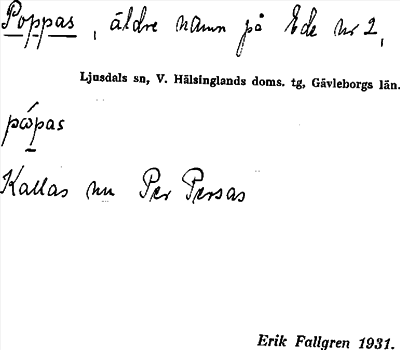 Poppas, äldre namn på Ede nr 2,
Ljusdals sn, V. Hälsinglands doms. tg, Gävleborgs län.
pώpas
Kallas nu Per Persas
Erik Fallgren 1931.